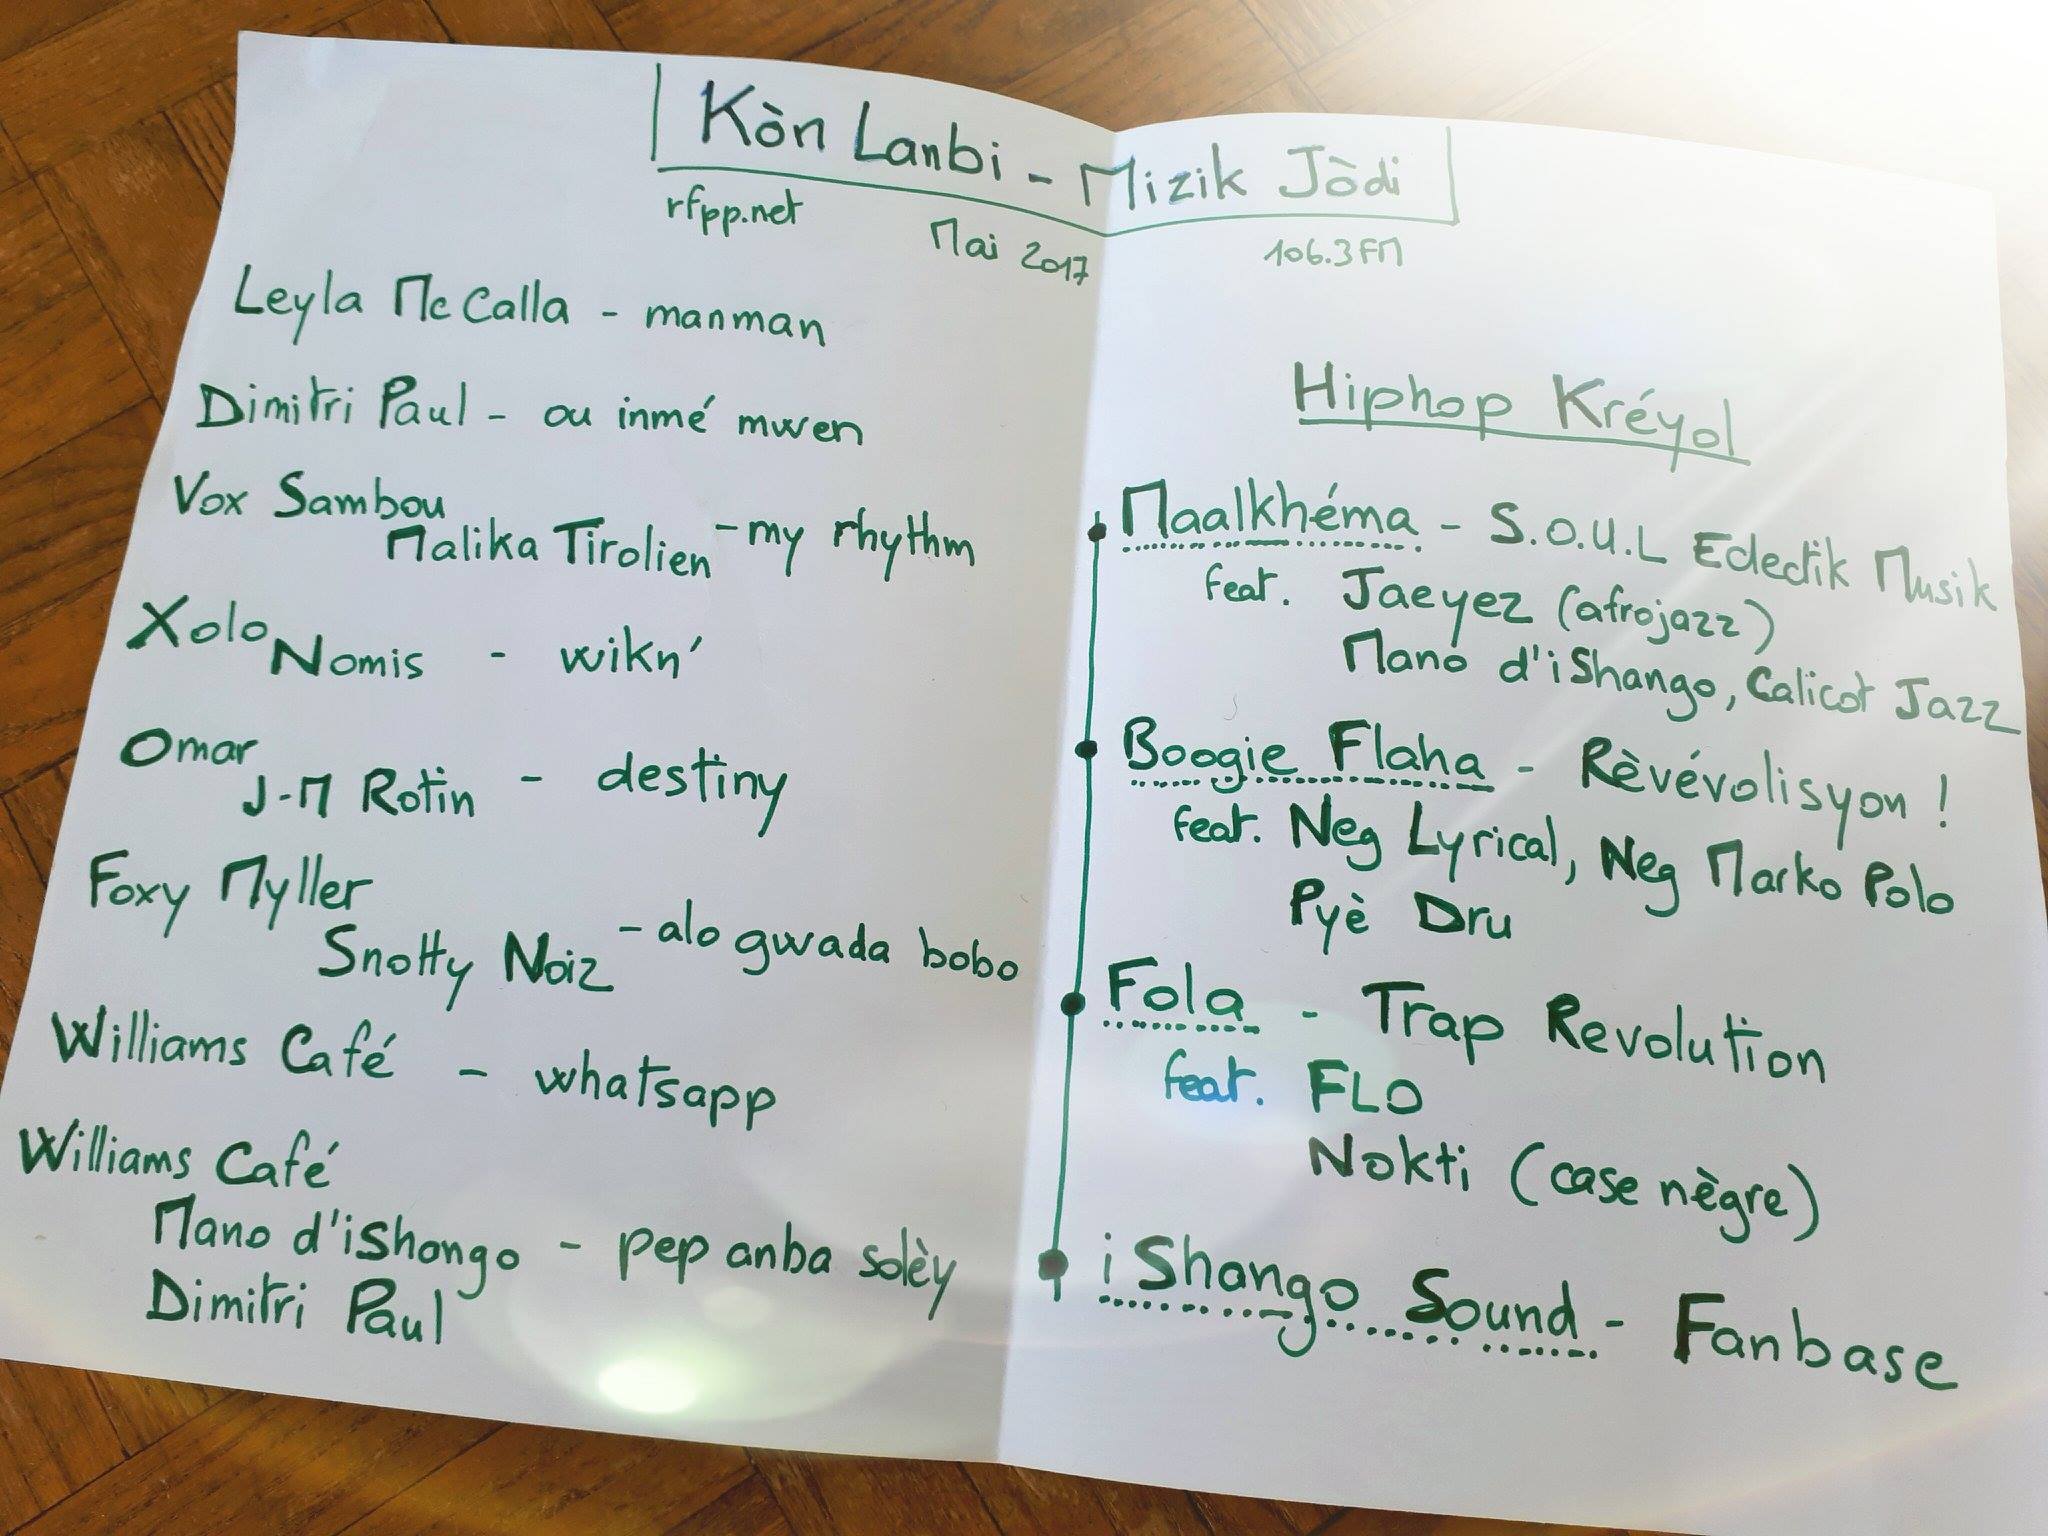 Kòn Lanbi - Mizik Jòdi
rfpp.net
Mai 2017
106.3 FM
Leyla McCalla - manman
Dimitri Paul - ou inmé mwen
Vox Sambou
Malika Tirolien - my rhythm
Xolo
Nomis - wikn'
Omar
J-M Rotin - destiny
Foxy Myller
Snotty Noiz - alo gwada bobo
Williams Café - whatsapp
Williams Café
Mano d'iShango - pep anba solèy
Dimitri Paul
Hiphop Kréyol
Maalkhéma - S.O.U.L Eclectik Musik
feat. Jaeyez (afrojazz)
Mano d'iShango, Calicot Jazz
Boogie Flaha - Rèvévolisyon !
feat. Neg Lyrical, Neg Marko Polo
Pyè Dru
Fola - Trap Revolution
feat. FLO
Nokti (case nègre)
iShango Sound - Fanbase